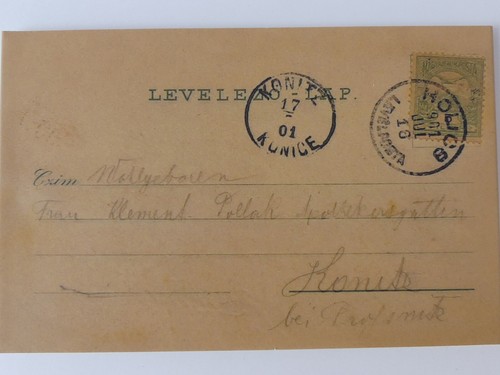 LEVELEZŐ-LAP.
KONITZ
17
01
KONICE
HOLICS
901 JUL
16
Czim Wollgeboren
Frau Klement Pollak
Konitz
bei Prossnitz